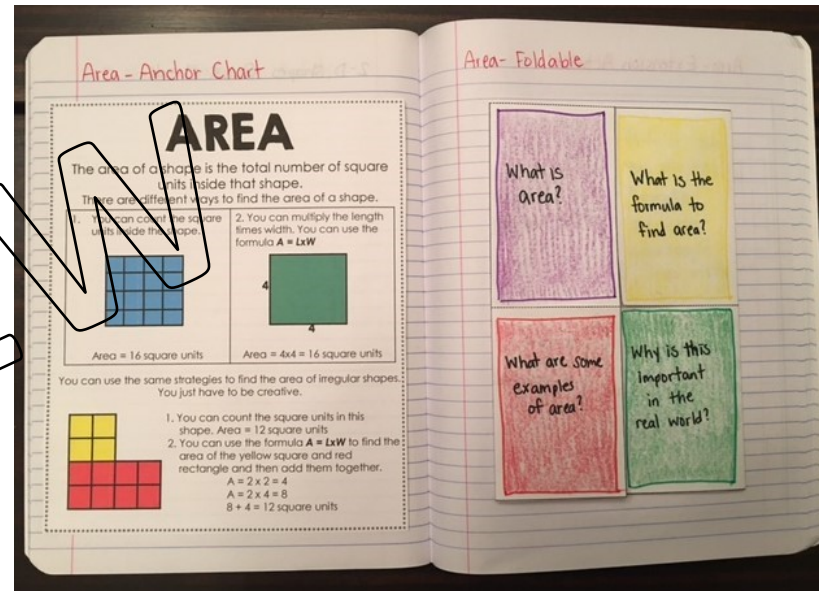 Area - Anchor Chart
AREA
The area of a shape is the total number of square
units inside that shape.
There are different ways to find the area of a shape.
1. You can count the square
units inside the shape.
Area = 16 square units
2. You can multiply the length
times width. You can use the
formula A = LxW
4
4
Area = 4x4 = 16 square units
You can use the same strategies to find the area of irregular shapes.
You just have to be creative.
1. You can count the square units in this
shape. Area = 12 square units
2. You can use the formula A = LxW to find the
area of the yellow square and red
rectangle and then add them together.
A = 2 x 2 = 4
A = 2 x 4 = 8
8 + 4 = 12 square units
Area- Foldable
What is
area?
What is the
formula to
find area?
What are some
examples
of area?
Why is this
important
in the
real world?
W